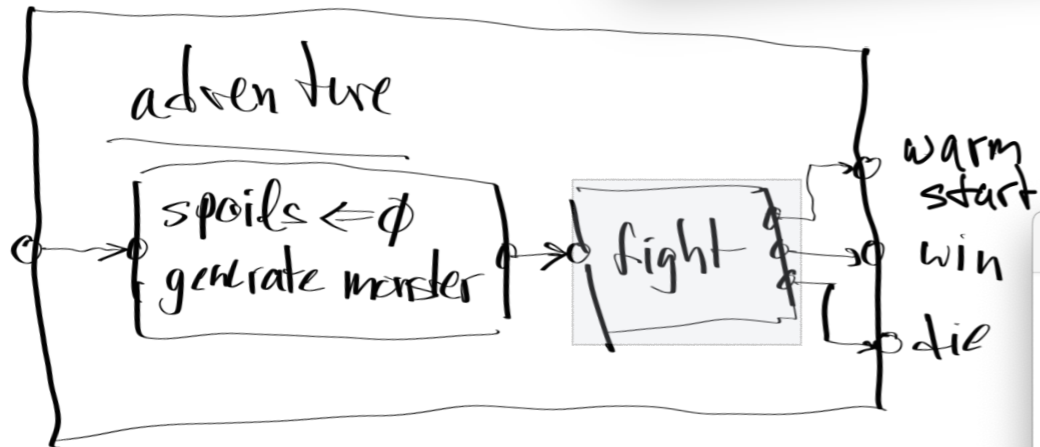 adventure
spoils ⇐ ϕ
generate monster
fight
warm
start
win
die